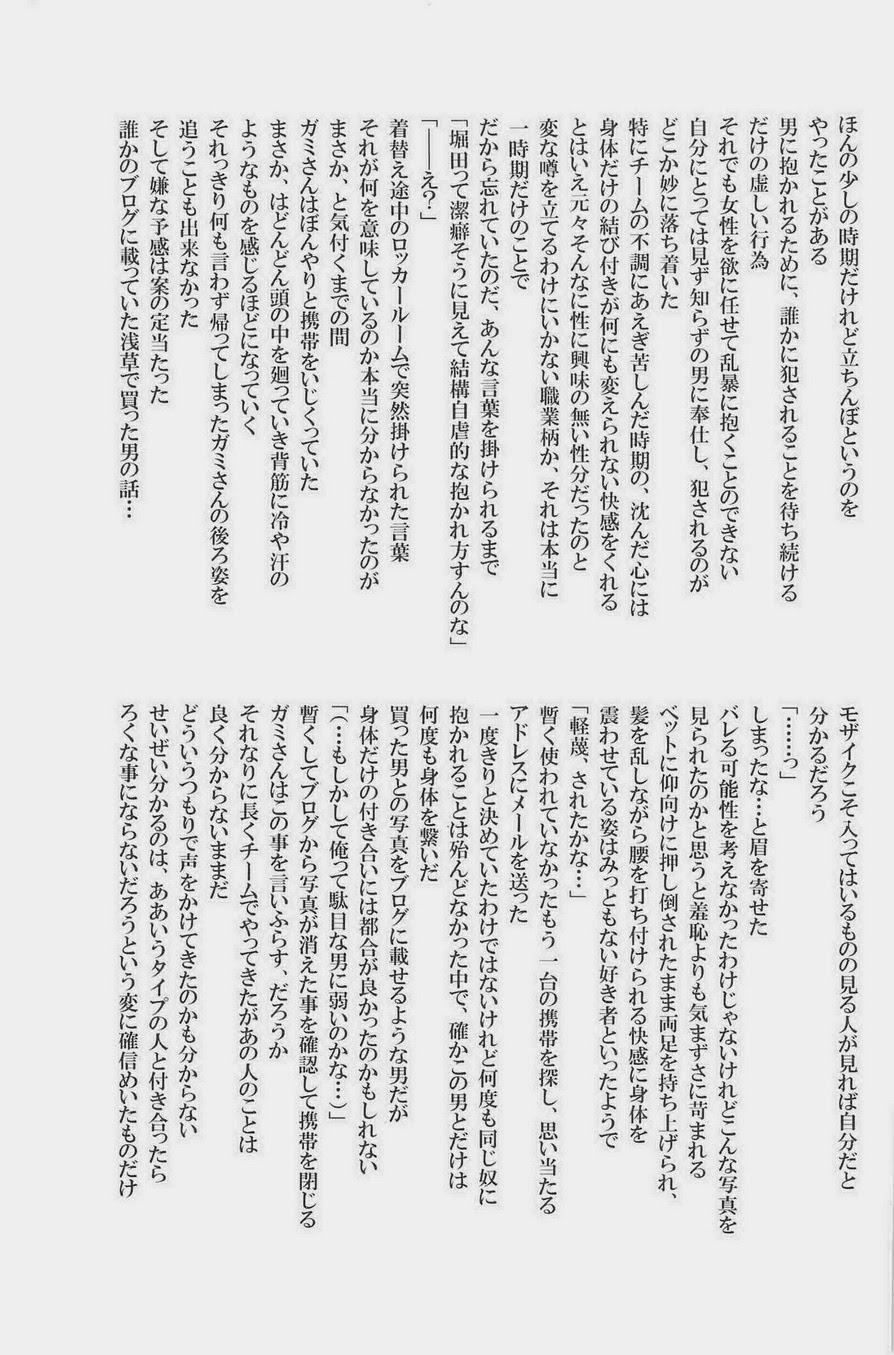 ほんの少しの時期だけれど立ちんぼというのを
やったことがある
男に抱かれるために、誰かに犯されることを待ち続ける
だけの虚しい行為
それでも女性を欲に任せて乱暴に抱くことのできない
自分にとっては見ず知らずの男に奉仕し、犯されるのが
どこか妙に落ち着いた
特にチームの不調にあえぎ苦しんだ時期の、沈んだ心には
身体だけの結び付きが何にも変えられない快感をくれる
とはいえ元々そんなに性に興味の無い性分だったのと
変な噂を立てるわけにいかない職業柄か、それは本当に
一時期だけのことで
だから忘れていたのだ、あんな言葉を掛けられるまで
「堀田って潔癖そうに見えて結構自虐的な抱かれ方すんのな」
「――え?」
着替え途中のロッカールームで突然掛けられた言葉
それが何を意味しているのか本当に分からなかったのが
まさか、と気付くまでの間
ガミさんはぼんやりと携帯をいじくっていた
まさか、はどんどん頭の中を廻っていき背筋に冷や汗の
ようなものを感じるほどになっていく
それっきり何も言わず帰ってしまったガミさんの後ろ姿を
追うことも出来なかった
そして嫌な予感は案の定当たった
誰かのブログに載っていた浅草で買った男の話…
モザイクこそ入ってはいるものの見る人が見れば自分だと
分かるだろう
「……っ」
しまったな…と眉を寄せた
バレる可能性を考えなかったわけじゃないけれどこんな写真を
見られたのかと思うと羞恥よりも気まずさに苛まれる
ベットに仰向けに押し倒されたまま両足を持ち上げられ、
髪を乱しながら腰を打ち付けられる快感に身体を
震わせている姿はみっともない好き者といったようで
「軽蔑、されたかな…」
暫く使われていなかったもう一台の携帯を探し、思い当たる
アドレスにメールを送った
一度きりと決めていたわけではないけれど何度も同じ奴に
抱かれることは殆んどなかった中で、確かこの男とだけは
何度も身体を繋いだ
買った男との写真をブログに載せるような男だが
身体だけの付き合いには都合が良かったのかもしれない
「(…もしかして俺って駄目な男に弱いのかな…)」
暫くしてブログから写真が消えた事を確認して携帯を閉じる
ガミさんはこの事を言いふらす、だろうか
それなりに長くチームでやってきたがあの人のことは
良く分からないままだ
どういうつもりで声をかけてきたのかも分からない
せいぜい分かるのは、ああいうタイプの人と付き合ったら
ろくな事にならないだろうという変に確信めいたものだけ